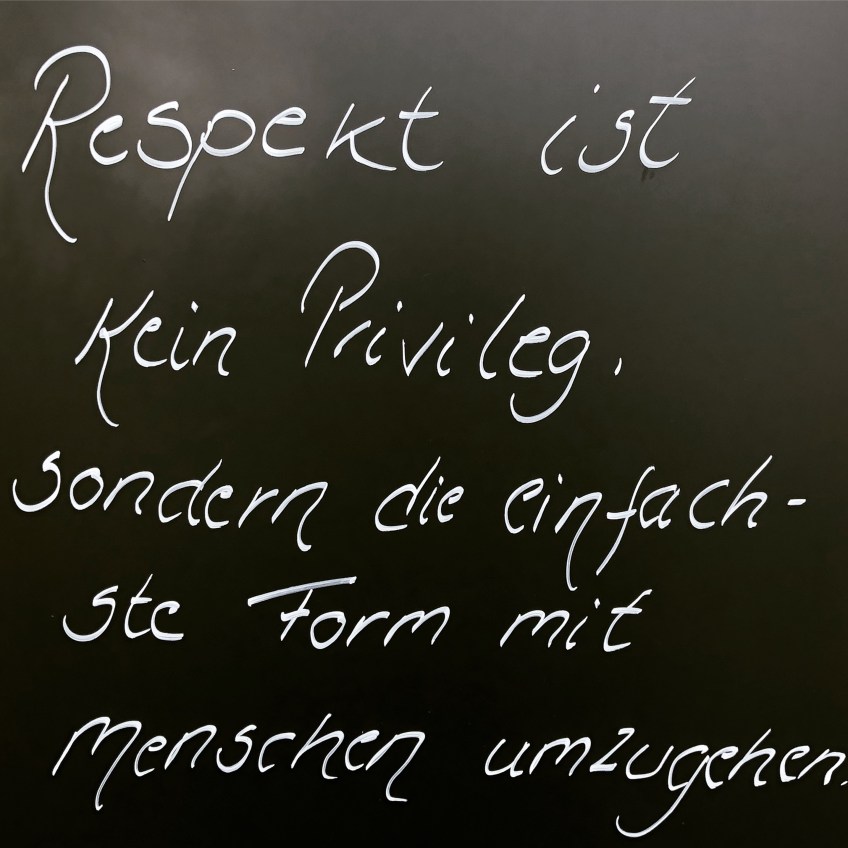 Respekt ist
kein Privileg.
sondern die einfach-
ste Form mit
Menschen umzugehen.